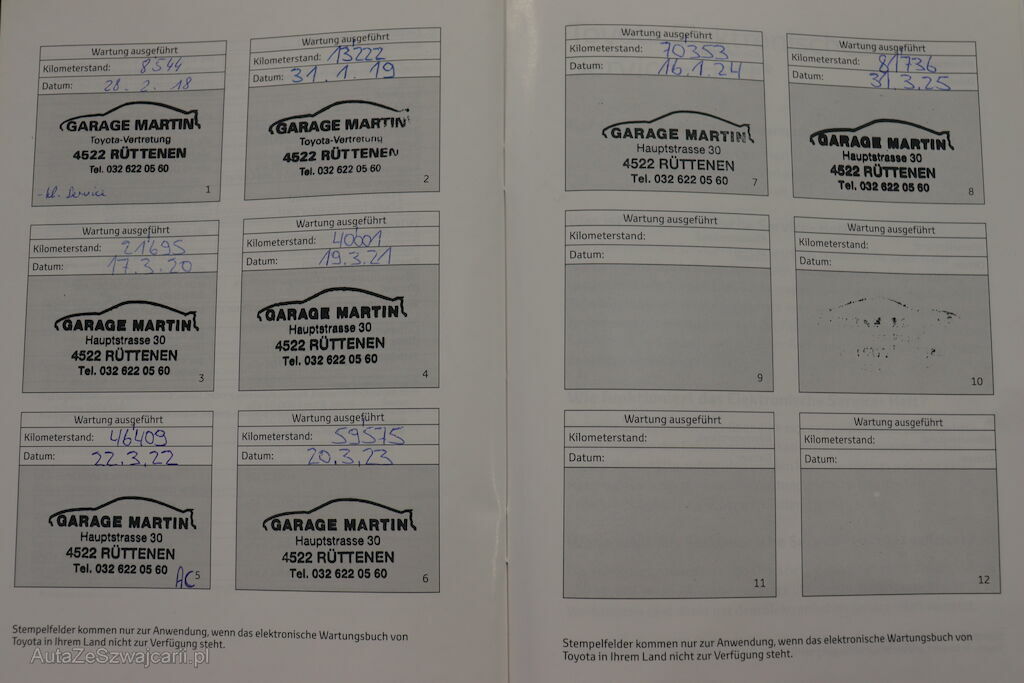 Wartung ausgeführt
Kilometerstand: 8544
Datum: 28. 2. 18
GARAGE MARTIN
Toyota-Vertretung
4522 RÜTTENEN
Tel. 032 622 05 60
-kl. Service
1
Wartung ausgeführt
Kilometerstand: 13222
Datum: 31. 1. 19
GARAGE MARTIN
Toyota-Vertretung
4522 RÜTTENEN
Tel. 032 622 05 60
2
Wartung ausgeführt
Kilometerstand: 21695
Datum: 17.3.20
GARAGE MARTIN
Hauptstrasse 30
4522 RÜTTENEN
Tel. 032 622 05 60
3
Wartung ausgeführt
Kilometerstand: 40601
Datum: 19.3.21
GARAGE MARTIN
Hauptstrasse 30
4522 RÜTTENEN
Tel. 032 622 05 60
4
Wartung ausgeführt
Kilometerstand: 46409
Datum: 22.3.22
GARAGE MARTIN
Hauptstrasse 30
4522 RÜTTENEN
Tel. 032 622 05 60
AC 5
Wartung ausgeführt
Kilometerstand: 59575
Datum: 20.3.23
GARAGE MARTIN
Hauptstrasse 30
4522 RÜTTENEN
Tel. 032 622 05 60
6
Stempelfelder kommen nur zur Anwendung, wenn das elektronische Wartungsbuch von
Toyota in Ihrem Land nicht zur Verfügung steht.
AutaZeSzwajcarii.pl
Wartung ausgeführt
Kilometerstand: 70353
Datum: 16.1.24
GARAGE MARTIN
Hauptstrasse 30
4522 RÜTTENEN
Tel. 032 622 05 60
7
Wartung ausgeführt
Kilometerstand: 81736
Datum: 31.3.25
GARAGE MARTIN
Hauptstrasse 30
4522 RÜTTENEN
Tel. 032 622 05 60
8
Wartung ausgeführt
Kilometerstand:
Datum:
9
Wartung ausgeführt
Kilometerstand:
Datum:
10
Wartung ausgeführt
Kilometerstand:
Datum:
11
Wartung ausgeführt
Kilometerstand:
Datum:
12
Stempelfelder kommen nur zur Anwendung, wenn das elektronische Wartungsbuch von
Toyota in Ihrem Land nicht zur Verfügung steht.